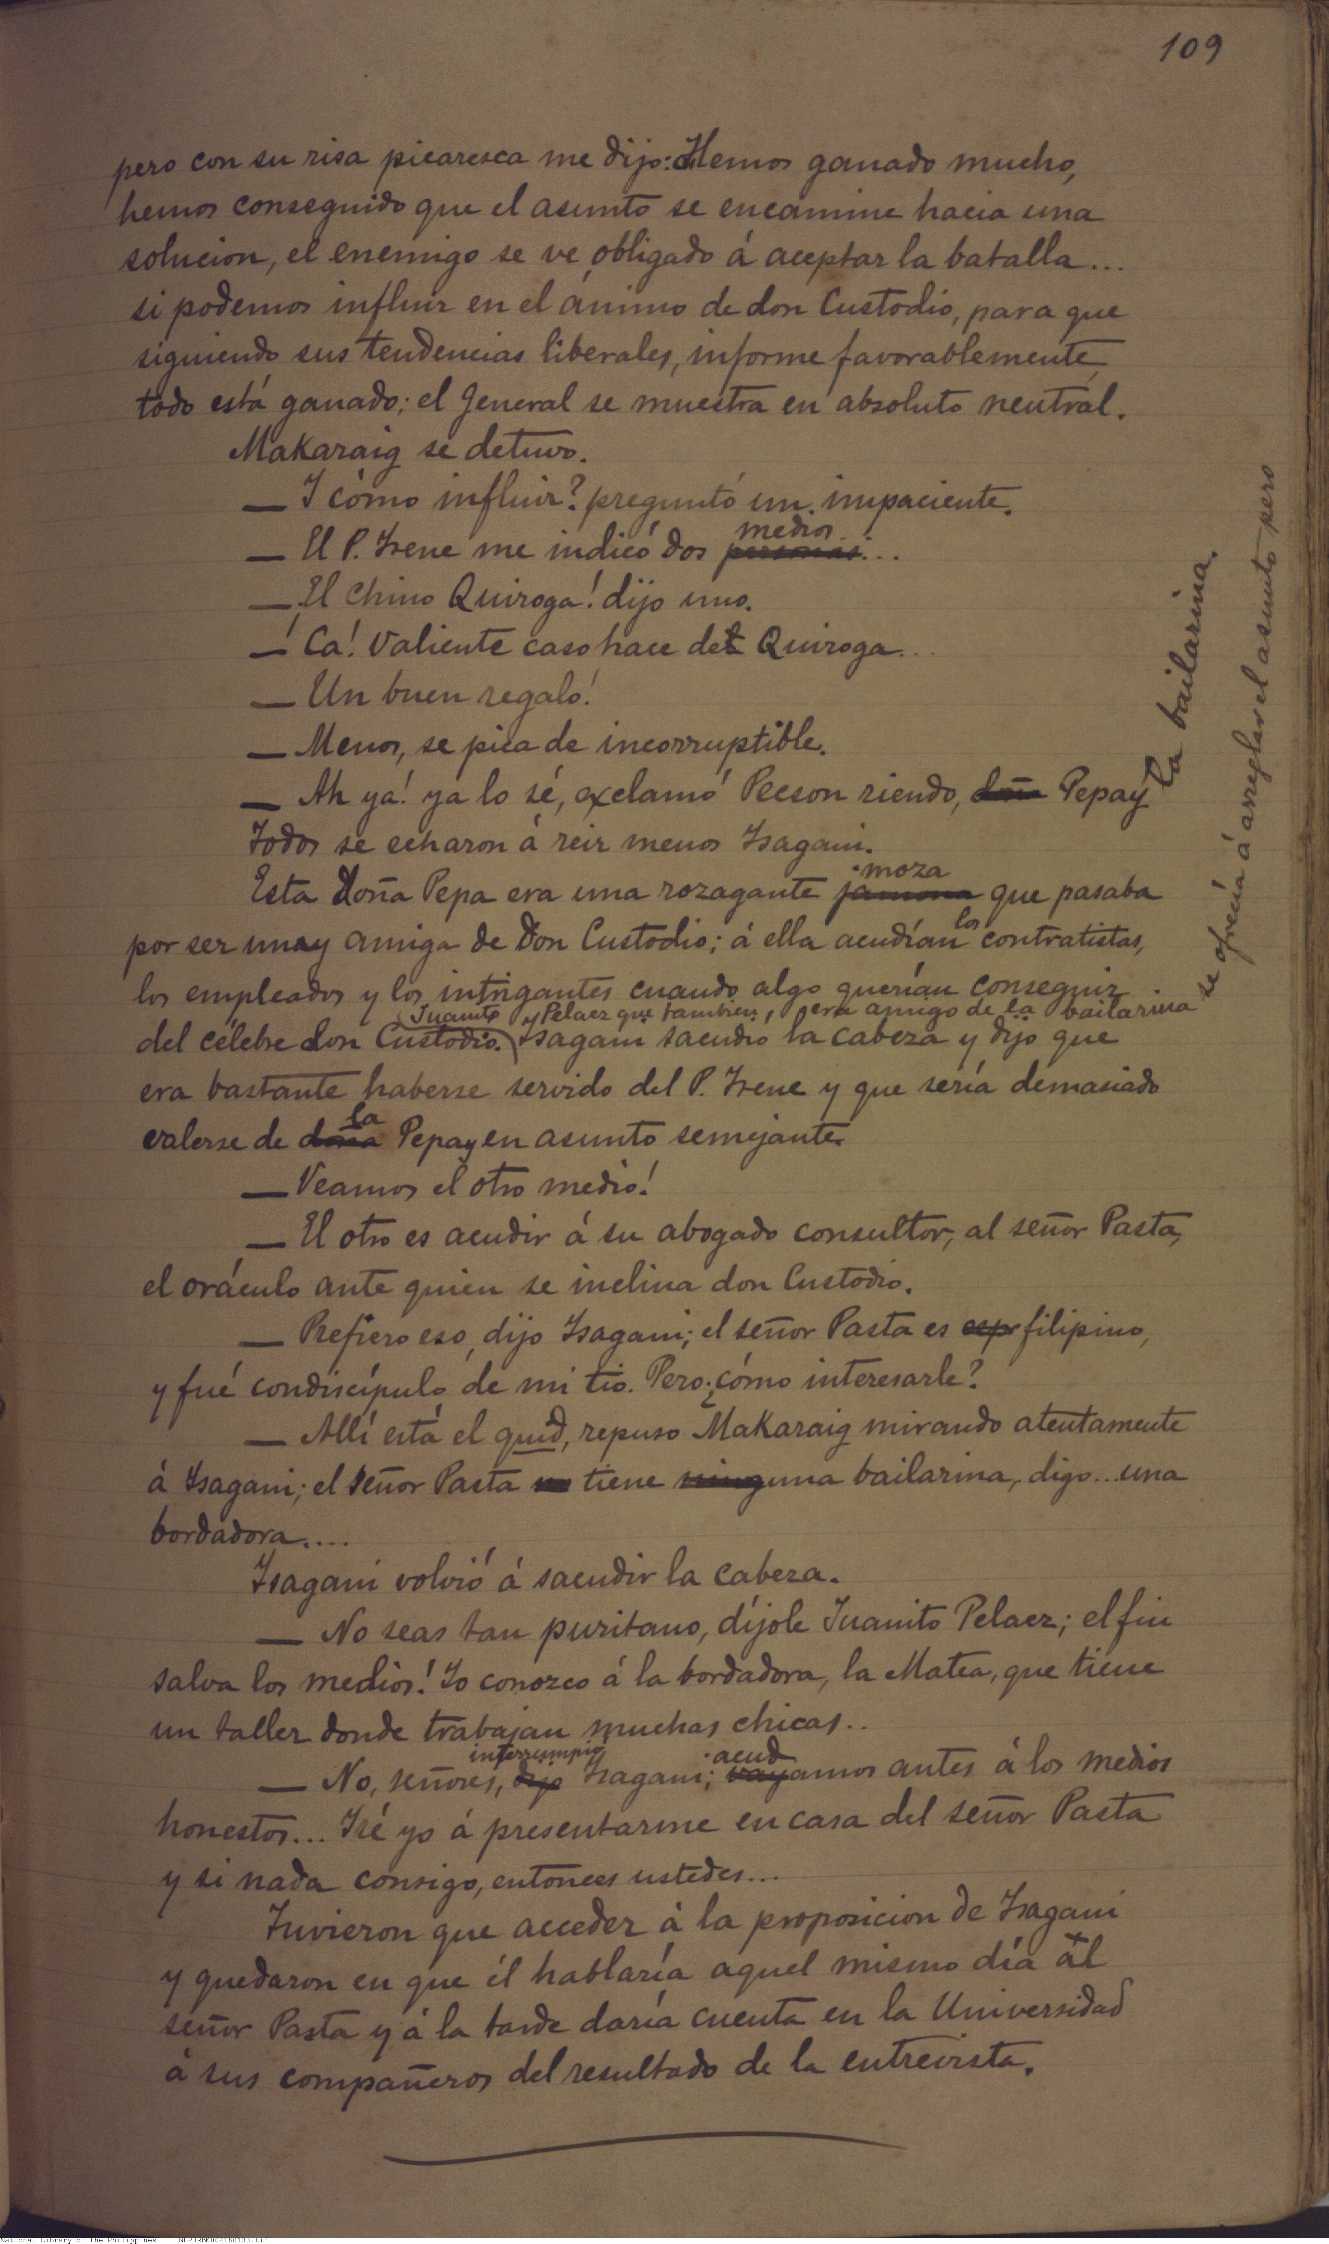 109
pero con su risa picaresca me dijo: Hemos ganado mucho,
hemos conseguido que el asunto se encamine hacia una
solucion, el enemigo se ve obligado á aceptar la batalla...
si podemos influir en el ánimo de don Custodio, para que
siguiendo sus tendencias liberales, informe favorablemente
todo está ganado; el General se muestra en absoluto neutral.
Makaraig se detuvo.
— Y cómo influir? preguntó un impaciente.
medios
— El P. Irene me indicó dos personas...
— El Chino Quiroga! dijo uno.
— ¡Ca! Valiente caso hace del Quiroga...
— Un buen regalo!
— Menos, se pica de incorruptible.
— Ah ya! ya lo sé, exclamó Pecson riendo, doña Pepay la bailarina.
Todos se echaron á reir menos Isagani.
moza
Esta Doña Pepa era una rozagante jamona que pasaba
los
por ser muy amiga de Don Custodio; á ella acudían contratistas,
los empleados y los intrigantes cuando algo querían conseguir
Juanito Pelaez que tambien era amigo de la bailarina se ofrecía á arreglar el asunto pero
del célebre don Custodio. Isagani sacudió la cabeza y dijo que
era bastante haberse servido del P. Irene y que sería demasiado
la
valerse de doña Pepay en asunto semejante.
— Veamos el otro medio!
— El otro es acudir á su abogado consultor, al señor Pasta,
el oráculo ante quien se inclina don Custodio.
— Prefiero eso, dijo Isagani; el señor Pasta es esp filipino,
y fué condiscípulo de mi tio. Pero ¿cómo interesarle?
— Allí está el quid, repuso Makaraig mirando atentamente
á Isagani; el señor Pasta no tiene ninguna bailarina, digo... una
bordadora....
Isagani volvió á sacudir la cabeza.
— No seas tan puritano, díjole Juanito Pelaez; el fin
salva los medios! Yo conozco á la bordadora, la Matea, que tiene
un taller donde trabajan muchas chicas..
interrumpió acud
— No, señores, dijo Isagani; vayamos antes á los medios
honestos... Iré yo á presentarme en casa del señor Pasta
y si nada consigo, entonces ustedes...
Tuvieron que acceder á la proposicion de Isagani
y quedaron en que él hablaría aquel mismo día al
señor Pasta y á la tarde daría cuenta en la Universidad
á sus compañeros del resultado de la entrevista.